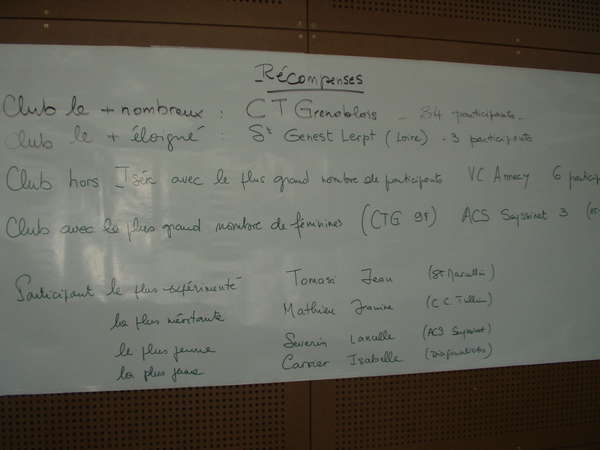 Récompenses
Club le + nombreux : CTGrenoblois - 84 participants
Club le + éloigné : St Genest Lerpt (Loire) - 3 participants
Club hors Isère avec le plus grand nombre de participants VC Annecy 6 particip
Club avec le plus grand nombre de féminines (CTG 9f) ACS Seyssinet 3
Participant le plus expérimenté Tomasi Jean (St Marcellin)
la plus méritante Mathieu Janine (CC Tullins)
le plus jeune Severin (ACS Seyssinet)
la plus jeune Carrier Isabelle